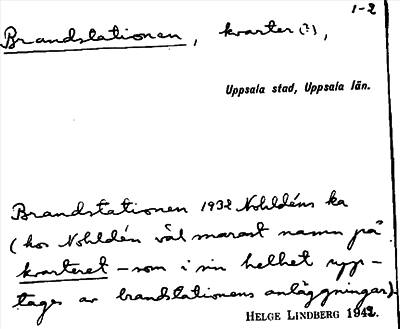 1-2
Brandstationen, kvarter (?),
Uppsala stad, Uppsala län.
Brandstationen 1932 Nohldéns ka
(hos Nohldén väl snarast namn på
kvarteret – som i sin helhet upp-
tages av brandstationens anläggningar).
HELGE LINDBERG 1942.